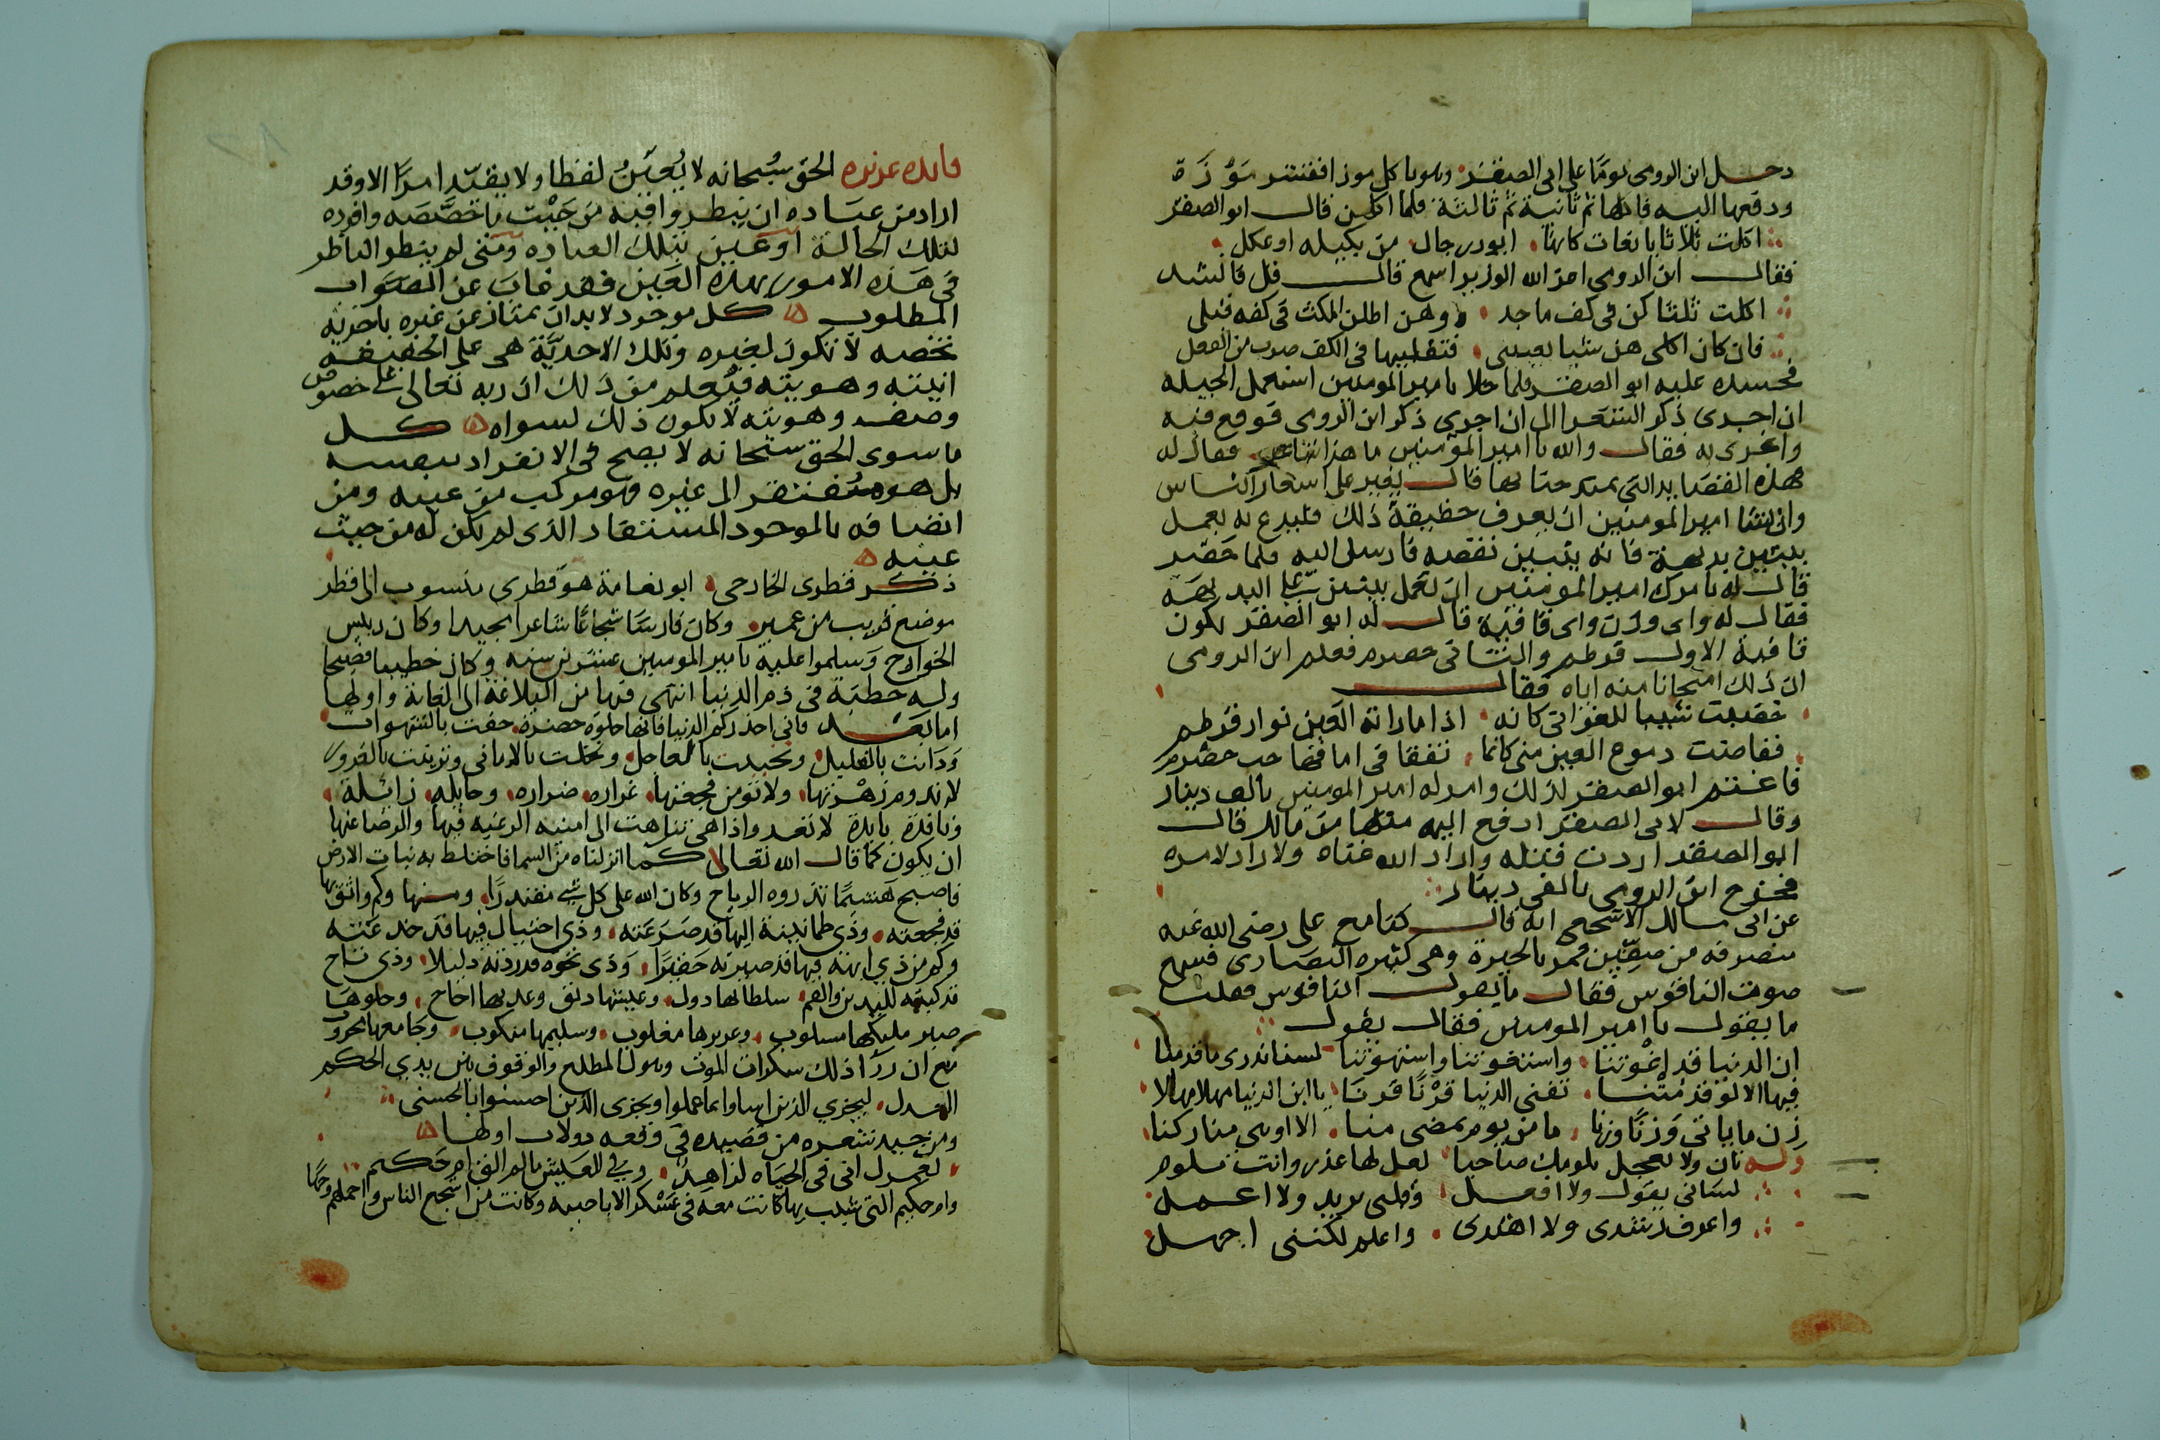 دخل ابن الرومى يوما على ابى الصقر وهو ياكل موزا فقشر موزة
ودفعها اليه فاكلها ثم ثانية ثم ثالثة فلما اكلهن قال ابو الصقر
اكلت ثلاثا يانعات كانها ايور رجال من او عكل
فقال ابن الرومى اعز الله الوزير اسمع قال قل فانشد
اكلت ثلثا كن فى كف ماجد وهن اطلن المكث فى كفه قبلى
فان كان اكلى هن شيا يعيبنى فتقليبها فى الكف ضرب من الفعل
فحسده عليه ابو الصقر فلما خلا بامير المومنين استعمل الحيله
ان اجرى ذكر الشعرا الى ان اجرى ذكر ابن الرومى فوقع فيه
واغرى به فقال والله يا امير المؤمنين ما هذا شاعر فقال له
هذه القصايد التى يمتدحنا بها قال يغير على اشعار الناس
وان شا امير المومنين ان يعرف حقيقة ذلك فليدع به يعمل
بيتين بديهة فانه يتبين نقصه فارسل اليه فلما حضر
قال له يامرك امير المومنين ان تعمل بيتين على البديهه
فقال له واى وزن واى قافية قال له ابو الصقر يكون
قافية الاول قرطم والثانى حصرم فعلم ابن الرومى
ان ذلك امتحانا منه اياه فقال
خضبت شيبا للغوانى كانه اذا ما راته العين نوار قرطم
ففاضت دموع العين منى كانما تفقا فى اماقها حب حصرم
فاغتم ابو الصقر لذلك وامر له امير المومنين بالف دينار
وقال لابى الصقر ادفع اليه مثلها من مالك قال
ابو الصقر اردت قتله واراد الله غناه ولا راد لامره
فخرج ابن الرومى بالفى دينار
عن ابى مالك الاشجعى انه قال كنا مع على رضى الله عنه
منصرفه من صفين فمر بالحيرة وهى كثيره النصارى فسمع
صوت الناقوس فقال ما يقول الناقوس فقلت
ما يقول يا امير المومنين فقال يقول
ان الدنيا قد اغوتنا واستغوتنا واستهوتنا لسنا ندرى ما قدمنا
فيها الا لو قد متنا تفنى الدنيا قرنا قرنا يا ابن الدنيا مهلا مهلا
زن ما ياتى وزنا وزنا ما من يوم يمضى منا الا اوهى منا ركنا
وله تان ولا تعجل بلومك صاحبا لعل لها عذر وانت تلوم
لسانى يقول ولا افعل وقلبى يريد ولا اعمل
واعرف رشدى ولا اهتدى واعلم لكننى اجهل
فايده عزيزه الحق سبحانه لا يعين لفظا ولا يقيد امرا الا وقد
اراد من عباده ان ينظروا فيه من حيث ما خصصه وافرده
لتلك الحالة او عين بتلك العباره ومتى لم ينظر الناظر
فى هذه الامور بهذه العين فقد غاب عن الصواب
المطلوب كل موجود لابد ان يمتاز عن غيره باحديه
تخصه لا تكون لغيره وتلك الاحدية هى على الحقيقة
انيته وهويته فيعلم من ذلك ان ربه تعالى على خصوص
وصف وهويته لا يكون ذلك لسواه كل
ما سوى الحق سبحانه لا يصح فى الانفراد بنفسه
بل هو مفتقر الى غيره وهو مركب من عينه ومن
اتصافه بالموجود المستفاد الذى لم يكن له من حيث
عينه
ذكر قطرى الخارجى ابو نعامة هو قطرى منسوب الى قطر
موضع قريب من عمير وكان فارسا شجاعا شاعرا مجيدا وكان رييس
الخوارج وسلموا عليه بامير المومنين عشرين سنه وكان خطيبا فصيحا
وله خطبة فى ذم الدنيا انتهى فيها من البلاغة الى الغاية واولها
اما بعد فانى احذركم الدنيا فانها حلوه خضرة حفت بالشهوات
وراقت بالقليل وتحببت بالعاجل وتحلت بالامانى وتزينت بالغرور
لا تدوم زهرتها ولا تومن فجعتها غرارة ضراره وحايله زائلة
ونافدة بايدة لا تعدو اذا هى تناهت الى امنيه الرغبه فيها والرضا عنها
ان يكون كما قال الله تعالى كما انزلناه من السما فاختلط به نبات الارض
فاصبح هشيما تذروه الرياح وكان الله على كل شى مقتدرا ومنها وكم واثق بها
قد فجعته وذى طمانينة اليها قد صرعته وذى احتيال فيها قد خدعته
وكم من ذي ابهة فيها قد صيرته حقيرا وذى نخوه قد ردته ذليلا وذى تاج
قد كبته لليدين والفم سلطانها دول وعيشها رنق وعذبها اجاج وحلوها
صبر مليكها مسلوب وعزيزها مغلوب وسليمها منكوب وجامعها محروب
مع ان ورا ذلك سكرات الموت وهول المطلع والوقوف بين يدي الحكم
العدل ليجزي الذين اساوا بما عملوا ويجزى الذين احسنوا بالحسنى
ومن جيد شعره من قصيده فى وقعه دولاب اولها
لعمرك انى فى الحياه لزاهد وفى العيش ما لم الق ام حكيم
وام حكيم التى شبب بها كانت معه فى عسكر الاباضيه وكانت من اشجع الناس واجملهم وجها